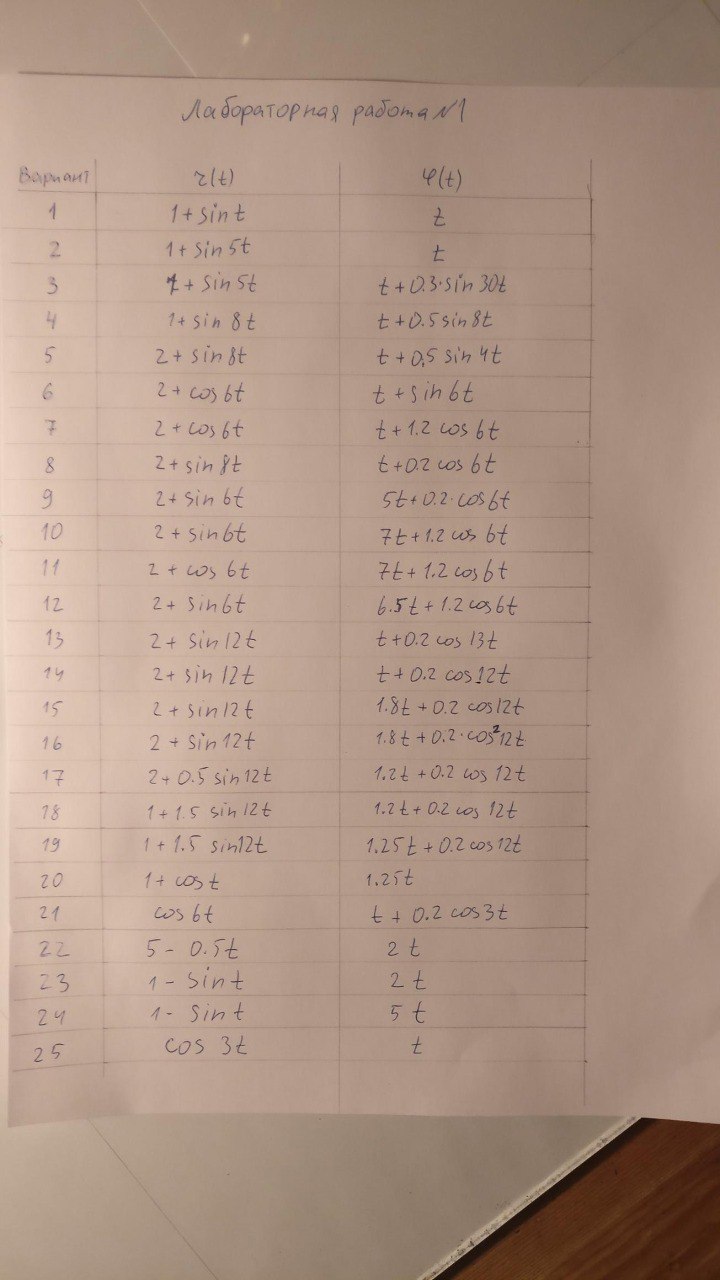 Лабораторная работа №1
Вариант r(t) φ(t)
1 1+sint t
2 1+sin5t t
3 1+sin5t t+0.3·sin30t
4 1+sin8t t+0.5sin8t
5 2+sin8t t+0,5sin4t
6 2+cos6t t+sin6t
7 2+cos6t t+1.2cos6t
8 2+sin8t t+0.2cos6t
9 2+sin6t 5t+0.2·cos6t
10 2+sin6t 7t+1.2cos6t
11 2+cos6t 7t+1.2cos6t
12 2+sin6t 6.5t+1.2cos6t
13 2+sin12t t+0.2cos13t
14 2+sin12t t+0.2cos12t
15 2+sin12t 1.8t+0.2cos12t
16 2+sin12t 1.8t+0.2·cos²12t
17 2+0.5sin12t 1.2t+0.2cos12t
18 1+1.5sin12t 1.2t+0.2cos12t
19 1+1.5sin12t 1.25t+0.2cos12t
20 1+cost 1.25t
21 cos6t t+0.2cos3t
22 5-0.5t 2t
23 1-sint 2t
24 1-sint 5t
25 cos3t t